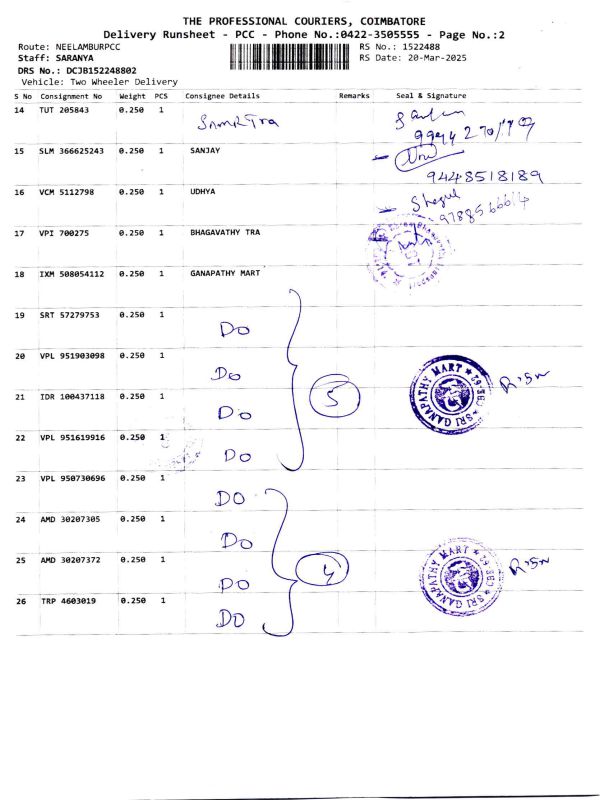 THE PROFESSIONAL COURIERS, COIMBATORE
Delivery Runsheet - PCC - Phone No.:0422-3505555 - Page No.:2
Route: NEELAMBURPCC RS No.: 1522488
Staff: SARANYA RS Date: 20-Mar-2025
DRS No.: DCJB152248802
Vehicle: Two Wheeler Delivery
S No Consignment No Weight PCS Consignee Details Remarks Seal & Signature
14 TUT 205843 0.250 1
15 SLM 366625243 0.250 1 SANJAY
9448518189
16 VCM 5112798 0.250 1 UDHYA
17 VPI 700275 0.250 1 BHAGAVATHY TRA
18 IXM 508054112 0.250 1 GANAPATHY MART
19 SRT 57279753 0.250 1 DO
20 VPL 951903098 0.250 1 DO
21 IDR 100437118 0.250 1 DO 5 SRI GANAPATHY MART ★ CBE-62 ★
22 VPL 951619916 0.250 1 DO
23 VPL 950730696 0.250 1 DO
24 AMD 30207305 0.250 1 DO
25 AMD 30207372 0.250 1 DO 4 SRI GANAPATHY MART ★ CBE-62 ★
26 TRP 4603019 0.250 1 DO